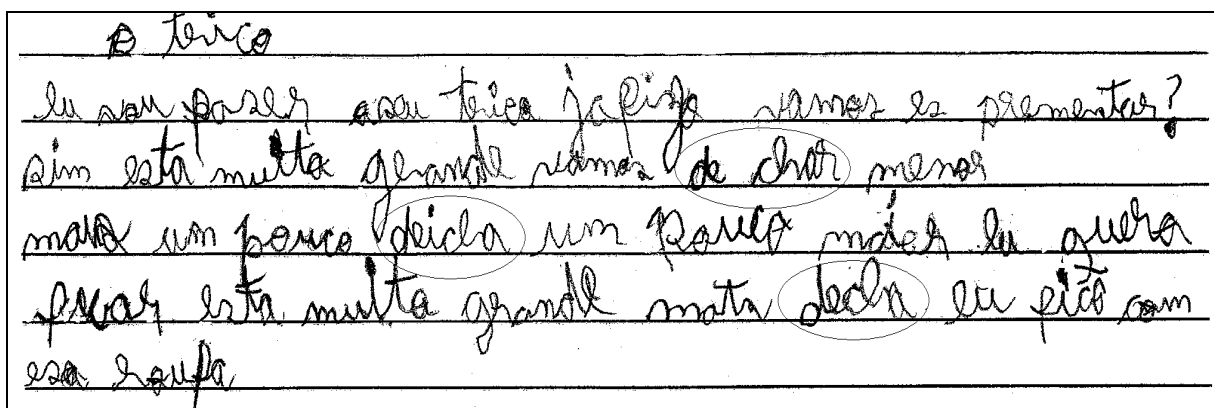 o terico
eu vou poser aseu terico ja fisgo vamos es prementar?
sim esta muita gerande vamos de char menor
mais um pouco deicha um pouco mães eu quero
ficar esta muita grande mata decha eu fico com
esa roupa